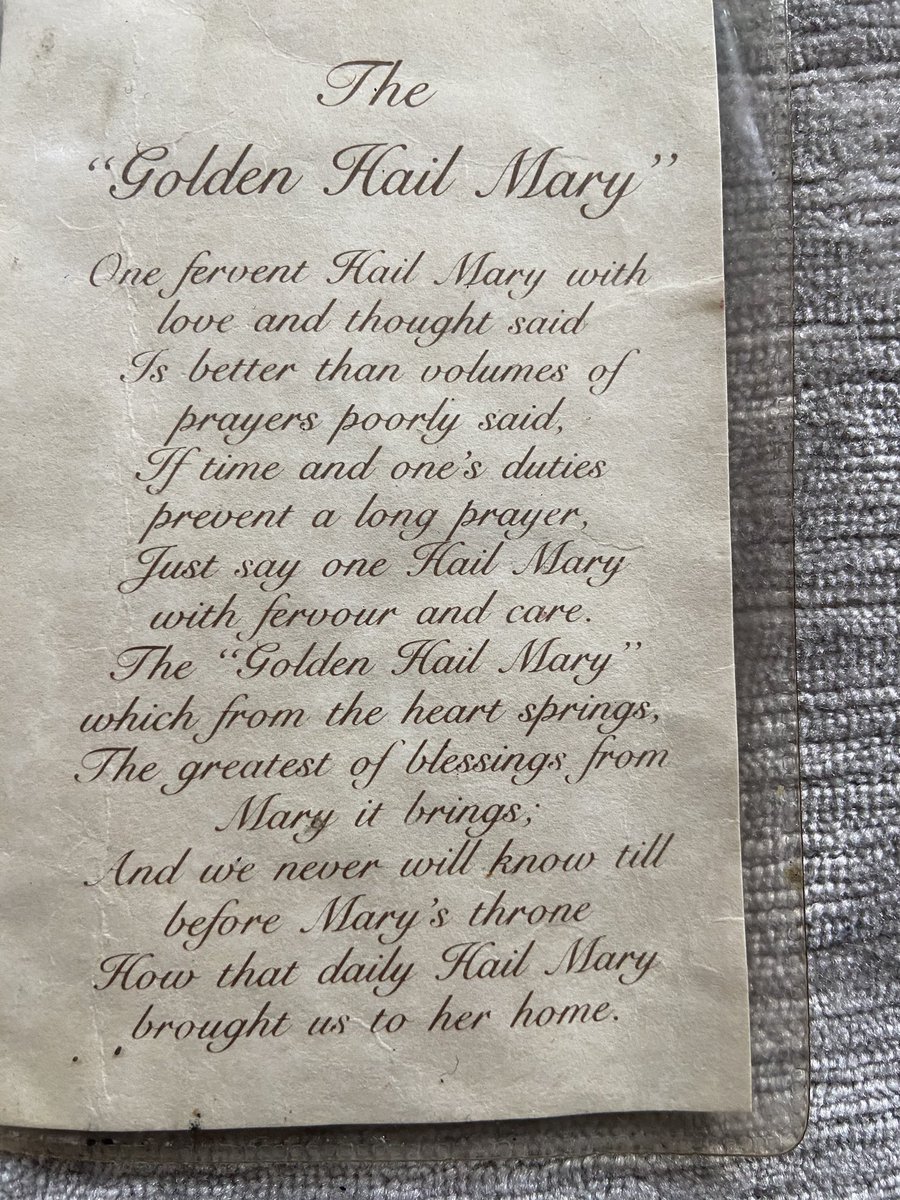 The
“Golden Hail Mary”
One fervent Hail Mary with
love and thought said
Is better than volumes of
prayers poorly said,
If time and one’s duties
prevent a long prayer,
Just say one Hail Mary
with fervour and care.
The “Golden Hail Mary”
which from the heart springs,
The greatest of blessings from
Mary it brings;
And we never will know till
before Mary’s throne
How that daily Hail Mary
brought us to her home.